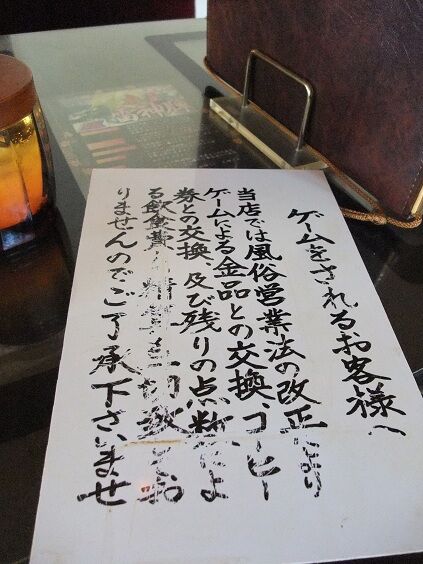 ゲームをされるお客様へ
当店では風俗営業法の改正により
ゲームによる金品との交換、コーヒー
券との交換 及び残りの点数によ
る飲食費の精算も一切致してお
りませんのでご了承下さいませ